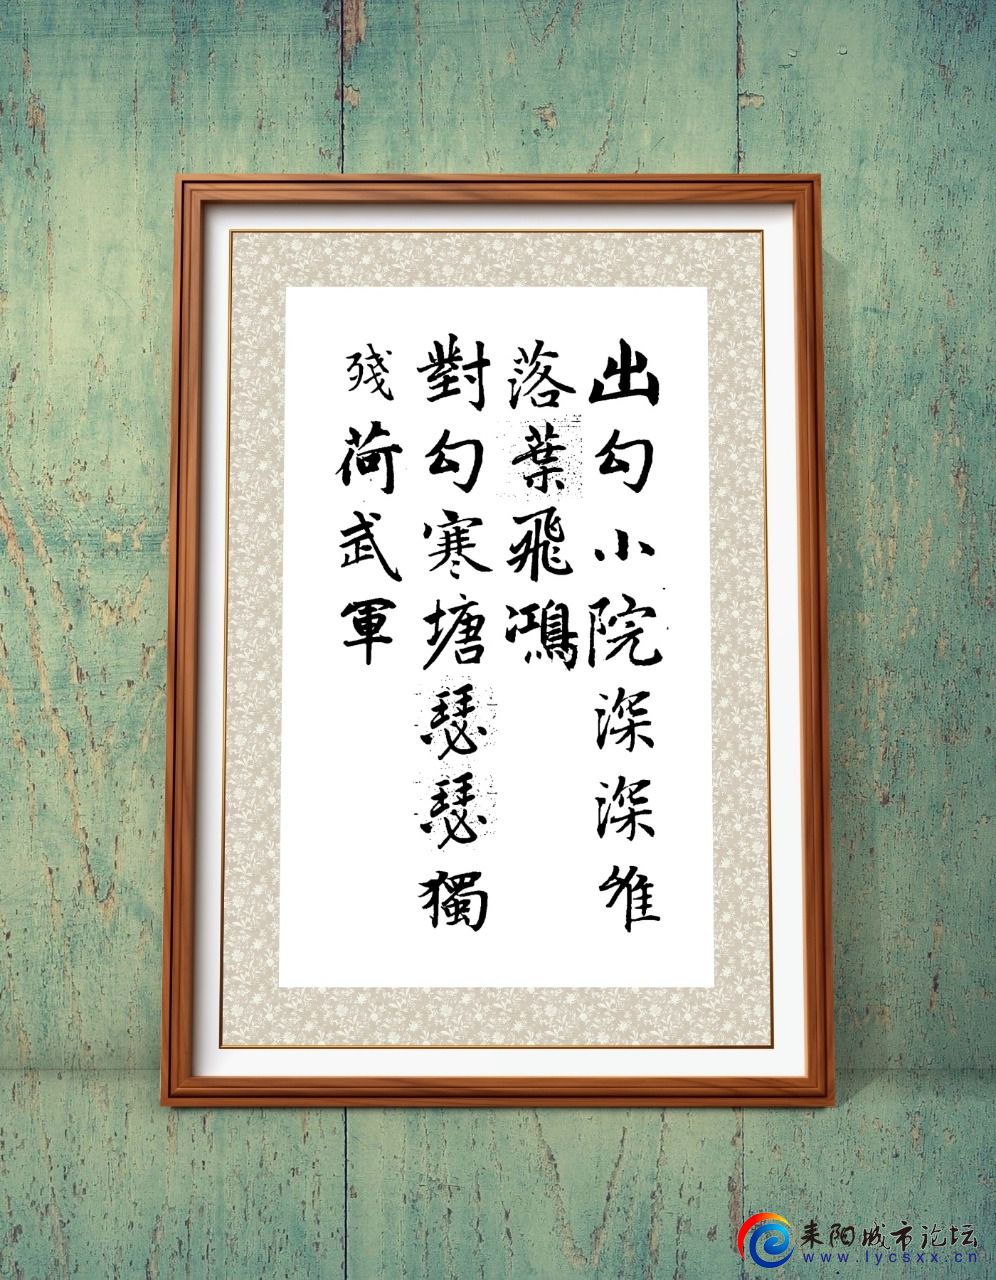 出勾小院深深唯
落葉飛鴻
對勾寒塘瑟瑟獨
殘荷武軍
耒阳城市论坛
www.lycsxx.cn